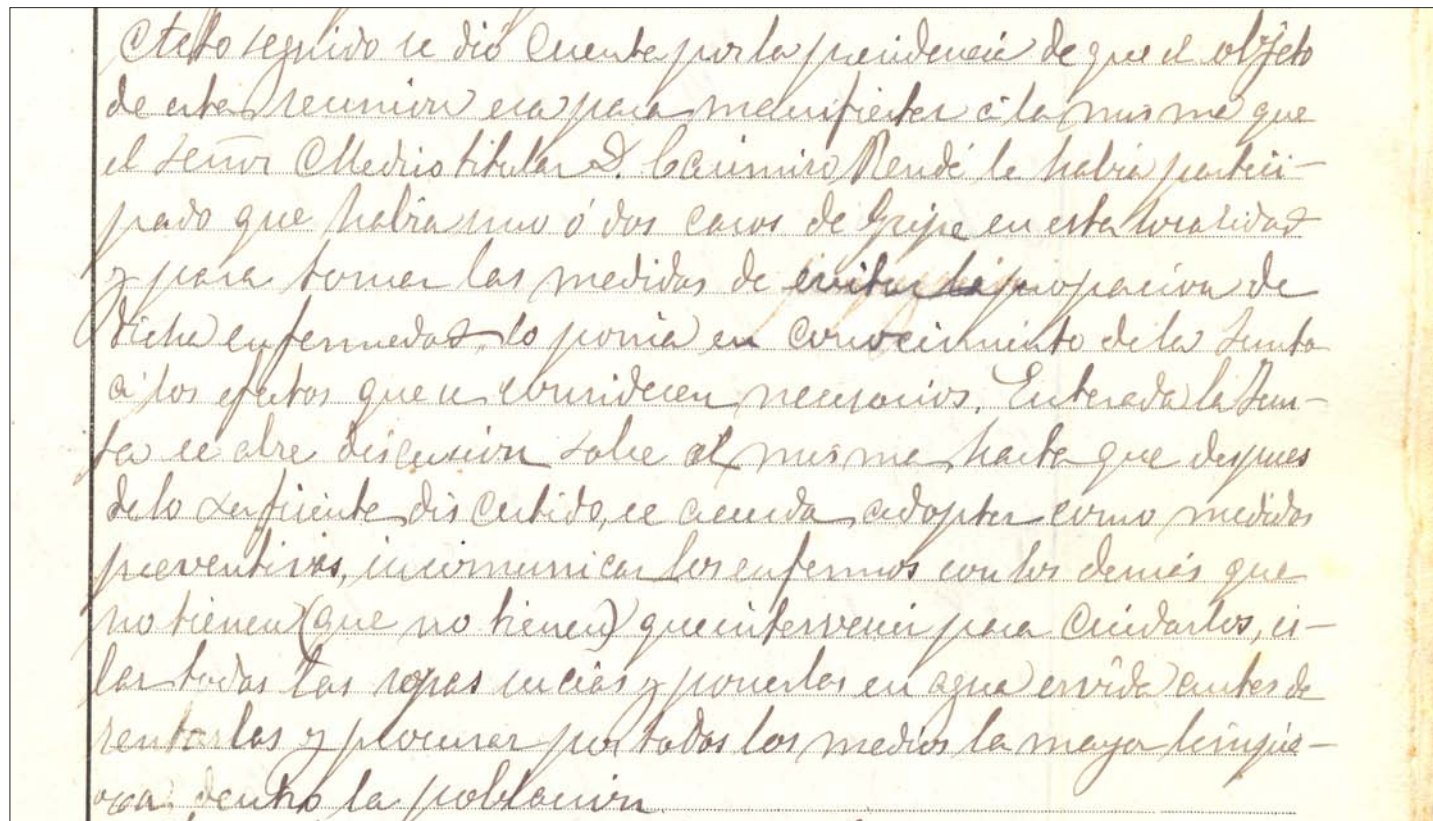 Acto seguido se dió cuenta por la presidencia de que el objeto
de esta reunion era para manifestar á la misma que
el Señor Medico titular D. Casimiro Rendé le habia partici-
pado que habia uno ó dos casos de Gripe en esta localidad
y para tomar las medidas de evitar la propacion de
dicha enfermedad, lo ponia en conocimiento de la Junta
á los efectos que se consideren necesarios. Enterada la Jun-
ta se abre discusion sobre el misma hasta que despues
de lo suficiente discutido, se acuerda adoptar como medidas
preventivas, incomunicar los enfermos con los demás que
no tienen (que no tienen) que intervenir para cuidarlos, is-
lar todas las ropas sucias y ponerlas en agua ervida antes de
rentarlas y procurar por todos los medios la mayor limpie-
za dentro la poblacion.